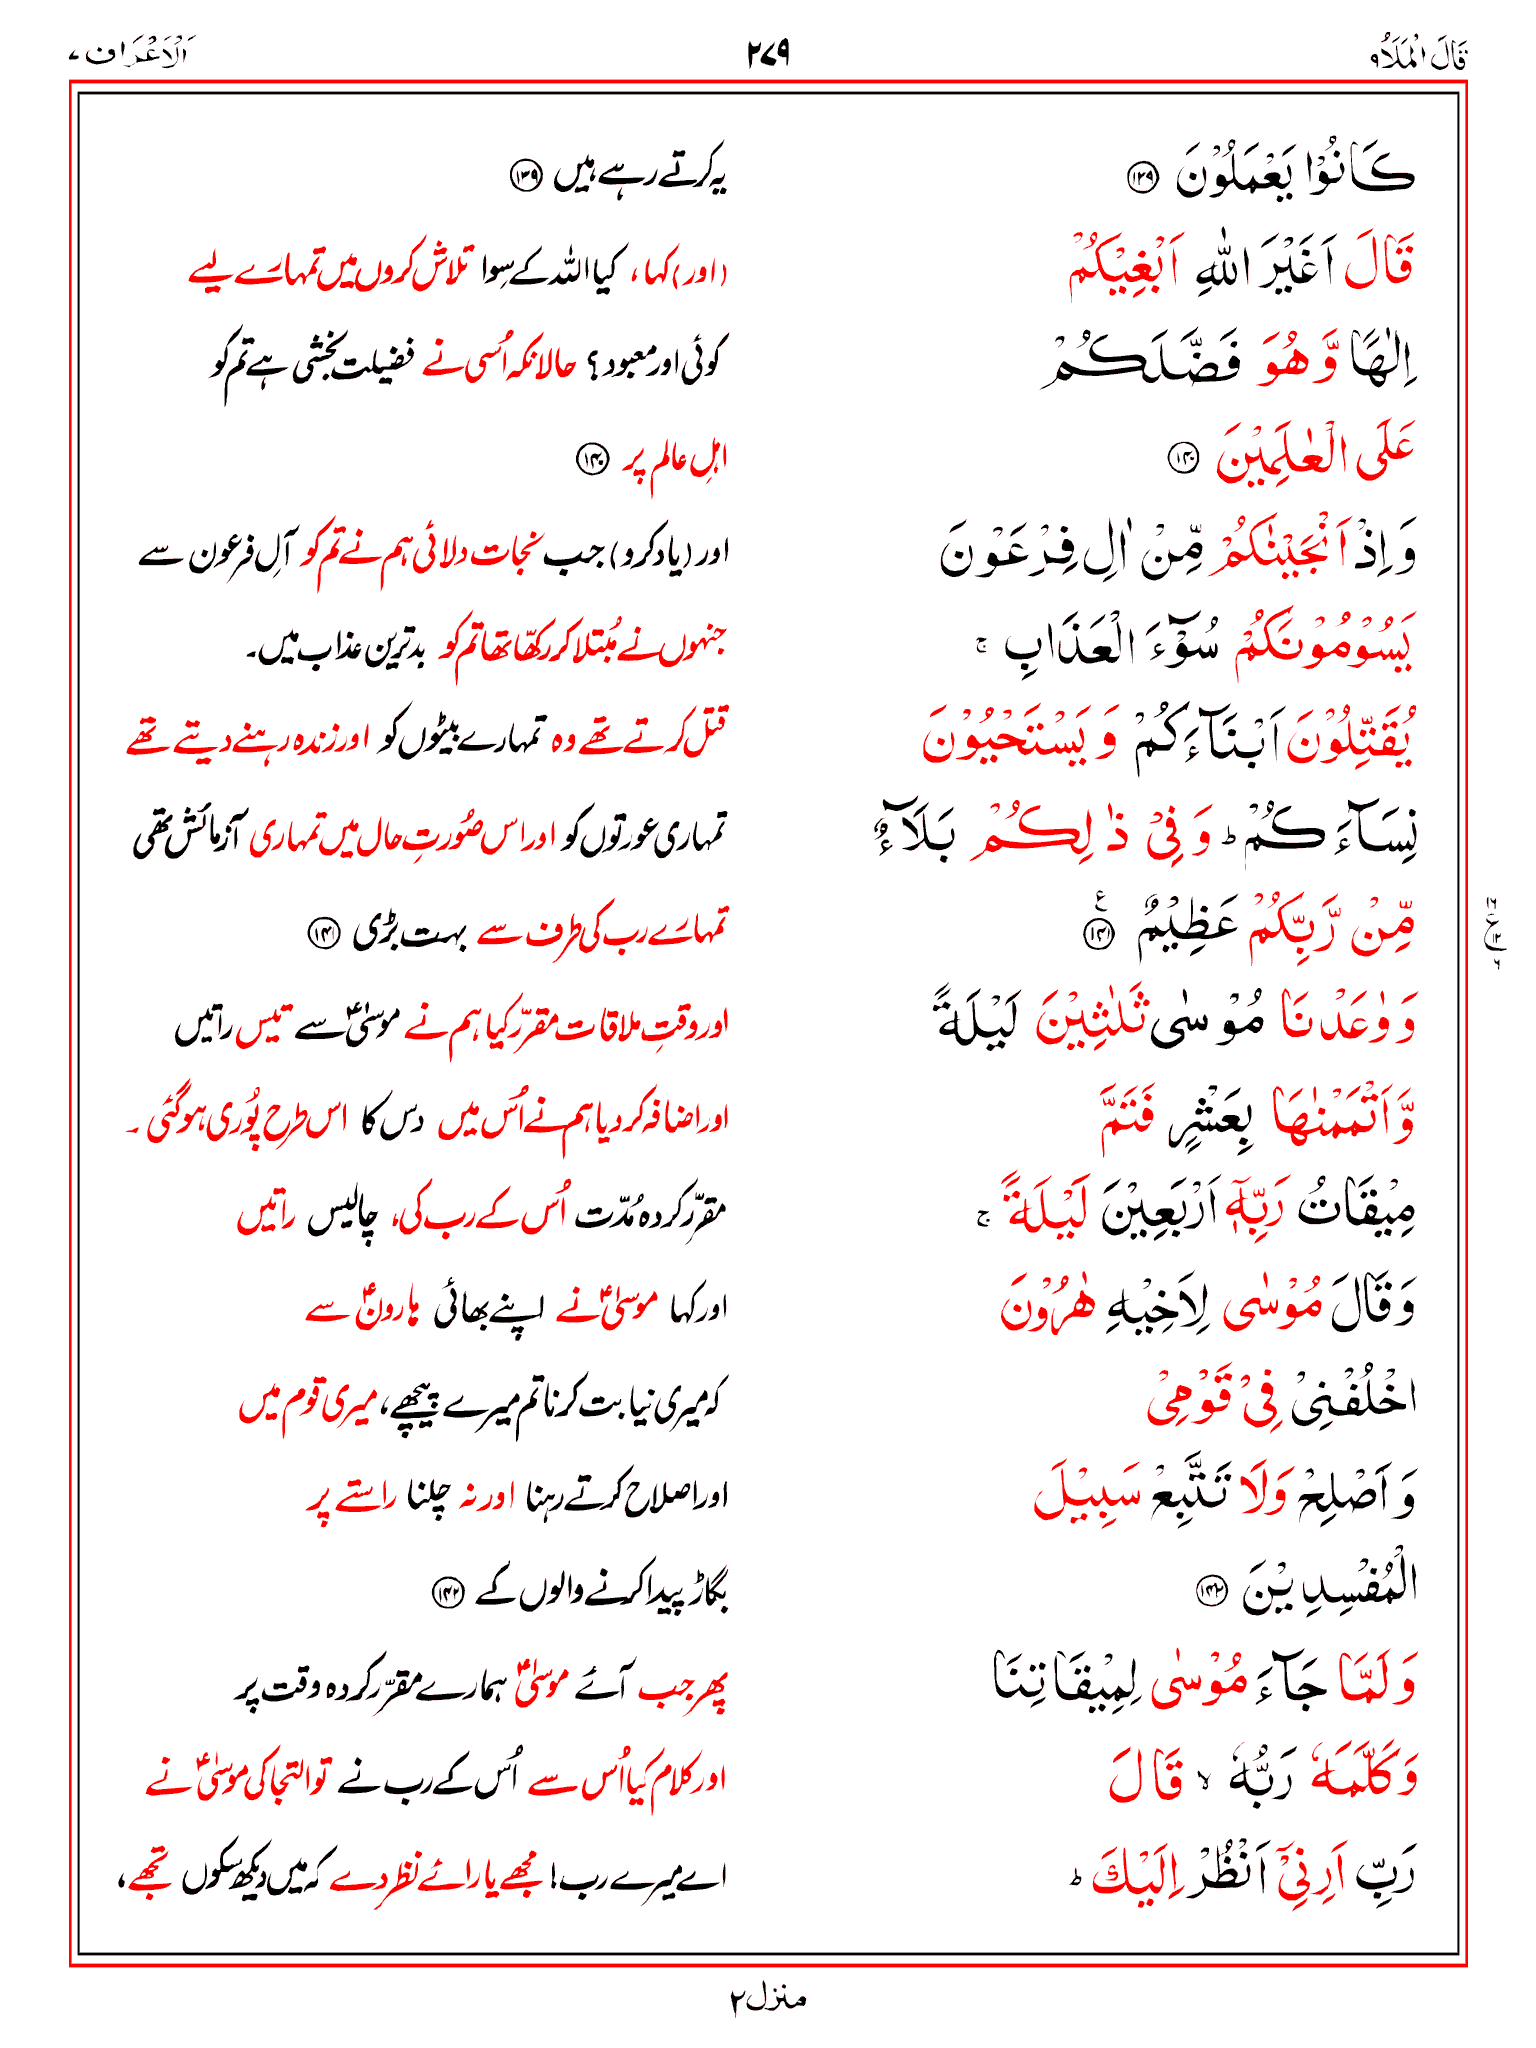 قَالَ الْمَلَاُ ۹
۲۷۹
اَلْاَعْرَاف ۷
كَانُوْا يَعْمَلُوْنَ ۱۳۹
یہ کرتے رہے ہیں ۱۳۹
قَالَ اَغَيْرَ اللّٰهِ اَبْغِيْكُمْ
(اور) کہا، کیا اللہ کے سِوا تلاش کروں میں تمہارے لیے
اِلٰهًا وَّ هُوَ فَضَّلَكُمْ
کوئی اور معبود؟ حالانکہ اُسی نے فضیلت بخشی ہے تم کو
عَلَى الْعٰلَمِيْنَ ۱۴۰
اہلِ عالم پر ۱۴۰
وَ اِذْ اَنْجَيْنٰكُمْ مِّنْ اٰلِ فِرْعَوْنَ
اور (یاد کرو) جب نجات دلائی ہم نے تم کو آلِ فرعون سے
يَسُوْمُوْنَكُمْ سُوْٓءَ الْعَذَابِ ۚ
جنہوں نے مُبتلا کر رکھّا تھا تم کو بدترین عذاب میں۔
يُقَتِّلُوْنَ اَبْنَآءَكُمْ وَ يَسْتَحْيُوْنَ
قتل کرتے تھے وہ تمہارے بیٹوں کو اور زندہ رہنے دیتے تھے
نِسَآءَكُمْ ؕ وَ فِيْ ذٰلِكُمْ بَلَآءٌ
تمہاری عورتوں کو اور اس صُورتِ حال میں تمہاری آزمائش تھی
مِّنْ رَّبِّكُمْ عَظِيْمٌ ۱۴۱ ع
تمہارے رب کی طرف سے بہت بڑی ۱۴۱
۱۶
ع ۱۲
۶
وَ وٰعَدْنَا مُوْسٰى ثَلٰثِيْنَ لَيْلَةً
اور وقتِ ملاقات مقرّر کیا ہم نے موسٰیؑ سے تیس راتیں
وَّ اَتْمَمْنٰهَا بِعَشْرٍ فَتَمَّ
اور اضافہ کر دیا ہم نے اُس میں دس کا اس طرح پُوری ہوگئی۔
مِيْقَاتُ رَبِّهٖٓ اَرْبَعِيْنَ لَيْلَةً ۚ
مقرّر کردہ مُدّت اُس کے رب کی، چالیس راتیں
وَ قَالَ مُوْسٰى لِاَخِيْهِ هٰرُوْنَ
اور کہا موسٰیؑ نے اپنے بھائی ہارونؑ سے
اخْلُفْنِيْ فِيْ قَوْمِيْ
کہ میری نیابت کرنا تم میرے پیچھے، میری قوم میں
وَ اَصْلِحْ وَلَا تَتَّبِعْ سَبِيْلَ
اور اصلاح کرتے رہنا اور نہ چلنا راستے پر
الْمُفْسِدِيْنَ ۱۴۲
بگاڑ پیدا کرنے والوں کے ۱۴۲
وَ لَمَّا جَآءَ مُوْسٰى لِمِيْقَاتِنَا
پھر جب آئے موسٰیؑ ہمارے مقرّر کردہ وقت پر
وَ كَلَّمَهٗ رَبُّهٗ ۙ قَالَ
اور کلام کیا اُس سے اُس کے رب نے تو التجا کی موسٰیؑ نے
رَبِّ اَرِنِيْٓ اَنْظُرْ اِلَيْكَ ؕ
اے میرے رب! مجھے یارائے نظر دے کہ میں دیکھ سکوں تجھے،
منزل ۲